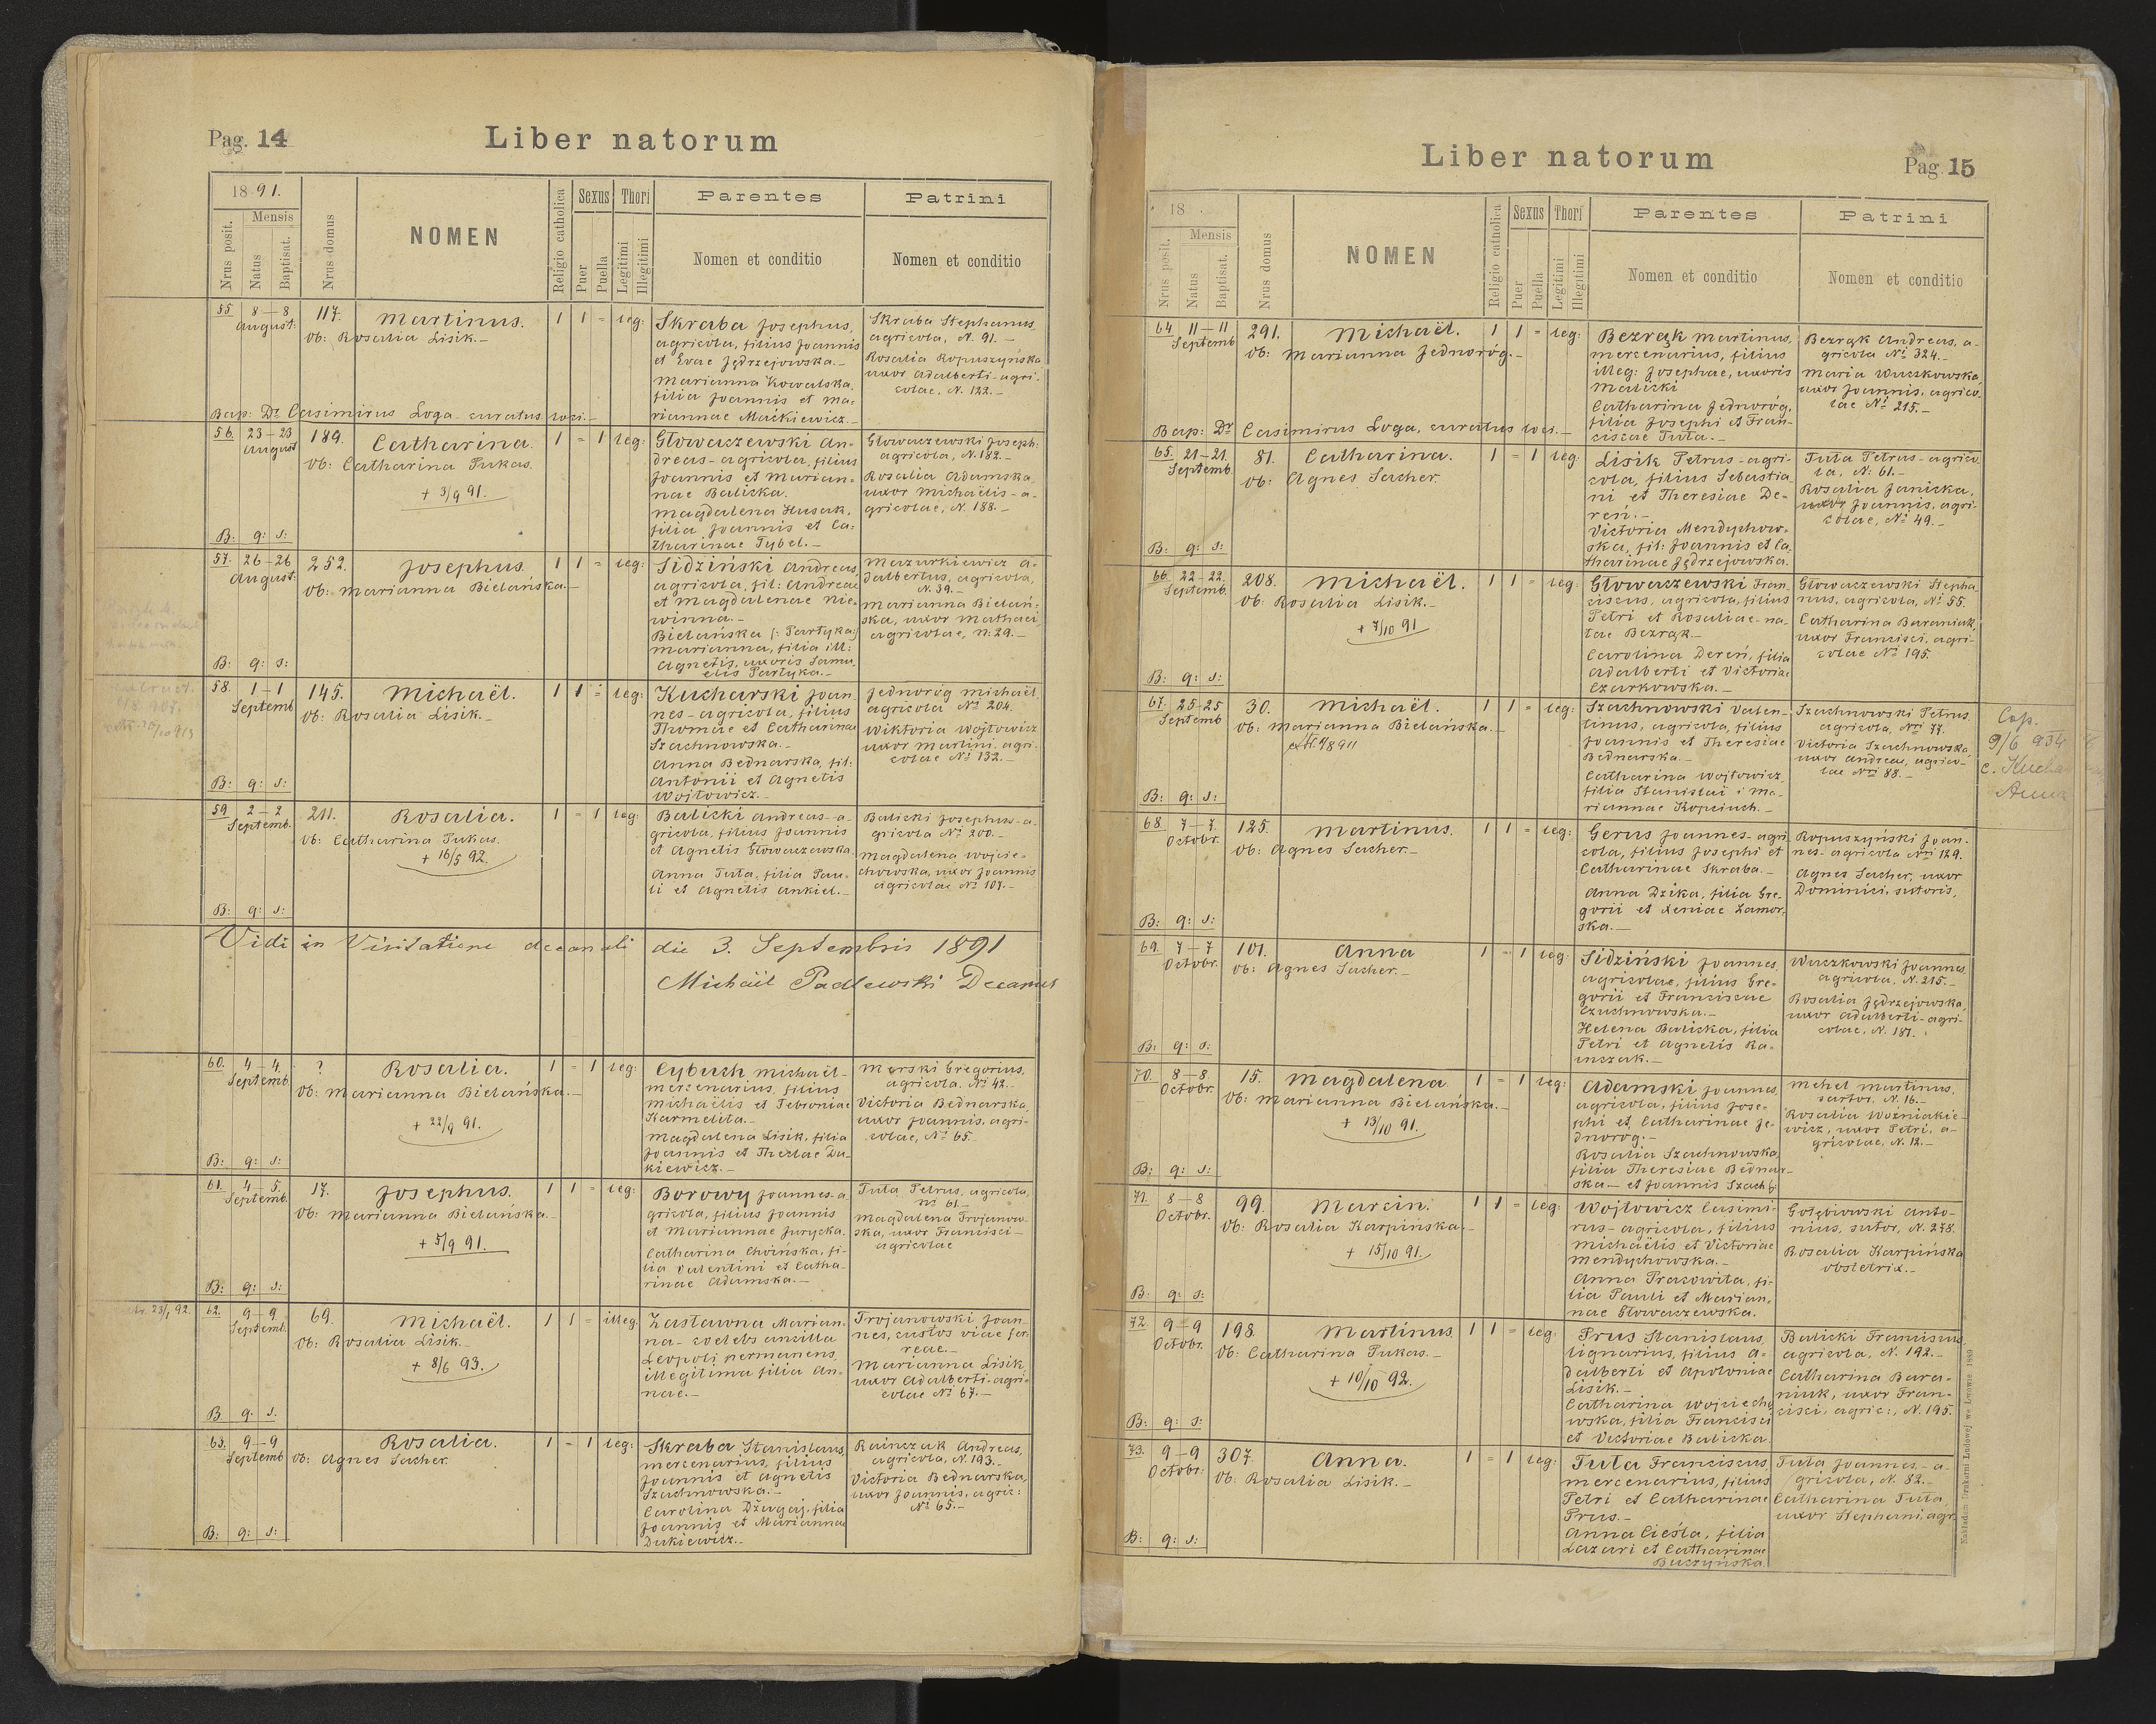 Pag. 14
Liber natorum
1891.
Nrus posit.
Mensis
Natus
Baptisat.
Nrus domus
NOMEN
Religio catholica
Sexus
Puer
Puella
Thori
Legitimi
Illegitimi
Parentes
Nomen et conditio
Patrini
Nomen et conditio
55 8-8 August: 117. Martinus. 1 1 = leg:
Ob: Rosalia Lisik.-
Skraba Josephus,
agricola, filius Joannis
et Evae Jędrzejowska.-
Marianna Kowalska,
filia Joannis et Ma=
riannae Maćkiewicz.-
Skraba Stephanus
agricola, N. 91.-
Rosalia Kopuszyńska
uxor Adalberti-agri-
colae, N. 122.-
Bap: Dr Casimirus Loga curatus loci.-
56. 23-23 August 189. Catharina. 1 = 1 leg:
Ob: Catharina Pukas.
+ 3/9 91.
Głowaczewski An=
dreas-agricola, filius
Joannis et Marian=
nae Balicka.
Magdalena Husak,
filia Joannis et Ca=
tharinae Tybel.-
Głowaczewski Joseph:
agricola, N. 182.-
Rosalia Adamska,
uxor Michaëlis-a-
gricolae, N. 188.-
B: q: s:
57. 26-26 August: 252. Josephus. 1 1 = leg:
Ob: Marianna Bielańska.-
Sidziński Andreas,
agricola, fil: Andreae
et Magdalenae Nie=
winna.-
Bielańska (: Partyka:)
Marianna, filia ill:
Agnetis, uxoris Samu
elis Partyka.-
Mazurkiewicz A-
dalbertus, agricola,
N. 39.-
Marianna Bielań:
ska, uxor Mathaei,
agricolae, N: 29.-
B: q: s:
58. 1-1 Septemb 145. Michaël. 1 1 = leg:
Ob: Rosalia Lisik.-
Kucharski Joan
nes-agricola, filius
Thomae et Catharinae
Szachnowska.-
Anna Bednarska, fil:
Antonii et Agnetis
Wojtowicz.-
Jednoróg Michaël
agricola No 204.
Wiktoria Wojtowicz
uxor Martini, agri-
colae No 132.-
B: q: s:
59 2-2 Septemb. 211. Rosalia. 1 = 1 leg:
Ob: Catharina Pukas.
+ 16/5 92.
Balicki Andreas-a-
gricola, filius Joannis
et Agnetis Głowaczewska.
Anna Tuta, filia Pau-
li et Agnetis Ankiel.-
Balicki Josephus-a-
gricola No 200.-
Magdalena Wojcie-
chowska, uxor Joannis
agricolae No 107.-
B: q: s:
Vidi in Visitatione decanali die 3. Septembris 1891
Michaël Padlewski Decanus
60. 4-4. Septemb. ? Rosalia. 1 = 1 leg:
Ob: Marianna Bielańska.-
+ 22/9 91.
Cybuch Michaël-
mercenarius, filius
Michaëlis et Febroniae
Karmelita.-
Magdalena Lisik, filia
Joannis et Theclae Du-
kiewicz.-
Merski Gregorius,
agricola, No 42.-
Victoria Bednarska,
uxor Joannis, agri-
colae, No 65.-
B: q: s:
61. 4-5. Septemb. 17. Josephus. 1 1 = leg:
Ob: Marianna Bielańska.-
+ 5/9 91.
Borowy Joannes-a
gricola, filius Joannis
et Mariannae Jurycka.
Catharina Choińska, fi-
lia Valentini et Catha-
rinae Adamska.-
Tuta Petrus, agricola,
No 61.-
Magdalena Trojanow-
ska, uxor Francisci-
agricolae
B: q: s:
23/1 92.
62. 9-9 Septemb. 69. Michaël. 1 1 = illeg.
Ob: Rosalia Lisik.-
+ 8/6 93.
Zastawna Marian-
na-coelebs ancilla
Leopoli permanens,
illegitima filia An-
nae.-
Trojanowski Joan-
nes, custos viae fer.
reae.-
Marianna Lisik,
uxor Adalberti-agri-
colae No 67.-
B. q. s.
63. 9-9 Septemb Rosalia. 1 = 1 leg:
Ob: Agnes Sacher.
Skraba Stanislaus,
mercenarius, filius
Joannis et Agnetis
Szachnowska.-
Carolina Dżugaj, filia
Joannis et Mariannae
Dukiewicz.-
Rainczak Andreas,
agricola, N. 193.-
Victoria Bednarska,
uxor Joannis, agric:
No 65.-
B: q: s:
Liber natorum
Pag. 15
18
Nrus posit.
Mensis
Natus
Baptisat.
Nrus domus
NOMEN
Religio catholica
Sexus
Puer
Puella
Thori
Legitimi
Illegitimi
Parentes
Nomen et conditio
Patrini
Nomen et conditio
64 11-11 Septemb 291. Michaël. 1 1 = leg:
Ob: Marianna Jednoróg.-
Bezrąk Martinus,
mercenarius, filius
illeg: Josephae, uxoris
Malicki
Catharina Jednoróg,
filia Josephi et Fran-
ciscae Tuta.-
Bezrąk Andreas, a-
gricola No 324.-
Maria Wuczkowska,
uxor Joannis, agrico-
lae No 215.-
Bap: Dr Casimirus Loga, curatus loci.-
65. 21-21. Septemb. 81. Catharina. 1 = 1 leg:
Ob: Agnes Sacher.
Lisik Petrus-agri-
cola, filius Sebastia
ni et Theresiae De-
reń.-
Victoria Mendychow-
ska, fil: Joannis et Ca
tharinae Jędrzejowska.
Tuta Petrus-agrico
la, N: 61.-
Rosalia Janicka,
uxor Joannis, agri-
colae, No 49.-
B: q: s:
66. 22-22. Septemb. 208. Michaël. 1 1 = leg:
Ob: Rosalia Lisik.-
+ 7/10 91
Głowaczewski Fran,
ciscus, agricola, filius
Petri et Rosaliae-na-
tae Bezrąk.-
Carolina Dereń, filia
Adalberti et Victoriae
Czarkowska.-
Głowaczewski Stepha
nus, agricola, No 55.
Catharina Baraniak,
uxor Francisci, agri-
colae No 195.
B: q: s:
67. 25-25 Septemb 30. Michaël. 1 1 = leg:
Ob: Marianna Bielańska.-
Szachnowski Valen-
tinus, agricola, filius
Joannis et Theresiae
Bednarska.-
Catharina Wojtowicz,
filia Stanislai i Ma-
riannae Kopciuch.-
Szachnowski Petrus,
agricola, Nri 77.
Victoria Szachnowska,
uxor Andreae, agrico-
lae Nri 88.-
Cop.
9/6 934
c. Kucha
Anna
B: q: s:
68. 7-7. Octobr. 125. Martinus. 1 1 = leg:
Ob: Agnes Sacher.-
Gerus Joannes-agri
cola, filius Josephi et
Catharinae Skraba.-
Anna Dzika, filia Gre-
gorii et Xeniae Zamor,
ska.-
Kopuszyński Joan-
nes-agricola Nri 129.
Agnes Sacher, uxor
Dominici, sutoris,
B: q: s:
69. 7-7 Octobr. 101. Anna 1 = 1 leg:
Ob: Agnes Sacher.-
Sidziński Joannes,
agricolae, filius Gre-
gorii et Franciscae
Czachnowska.-
Helena Balicka, filia
Petri et Agnetis Ra-
inczak.-
Wuczkowski Joannes,
agricola, N. 215.-
Rosalia Jędrzejowska,
uxor Adalberti-agri-
colae, N. 187.
B: q: s:
70. 8-8 Octobr. 15. Magdalena 1 = 1 leg:
Ob: Marianna Bielańska.-
+ 13/10 91.
Adamski Joannes,
agricola, filius Jose-
phi et Catharinae Je-
dnoróg.-
Rosalia Szachnowska,
filia Theresiae Bednar-
ska.- et Joannis Szach
Mehel Martinus,
sartor, N. 16.-
Rosalia Woźniakie-
wicz, uxor Petri, a-
gricolae, N. 12.-
B: q: s:
71. 8-8 Octobr. 99. Marcin. 1 1 = leg:
Ob: Rosalia Karpińska.-
+ 15/10 91.
Wojtowicz Casimi-
rus-agricola, filius
Michaëlis et Victoriae
Mendychowska.-
Anna Pracowita, fi-
lia Pauli et Marian,
nae Głowaczewska.
Gołębiowski Anto-
nius, sutor, N. 278.
Rosalia Karpińska
obstetrix.-
B: q: s:
72. 9-9 Octobr. 198. Martinus. 1 1 = leg:
Ob: Catharina Pukas.-
+ 10/10 92.
Prus Stanislaus,
lignarius, filius A-
dalberti et Apoloniae
Lisik.-
Catharina Wojciecho
wska, filia Francisci
et Victoriae Balicka.
Balicki Franciscus
agricola, N. 192.-
Catharina Bara-
niak, uxor Fran-
cisci, agric:, N. 195.
B: q: s:
73. 9-9 Octobr: 307. Anna. 1 = 1 leg:
Ob: Rosalia Lisik.-
Tuta Franciscus,
mercenarius, filius
Petri et Catharinae
Prus.-
Anna Cieśla, filia
Lazari et Catharinae
Buczyńska.
Tuta Joannes-a-
gricola, N. 82.-
Catharina Tuta,
uxor Stephani, agr.
B: q: s:
Nakładem Drukarni Ludowej we Lwowie 1889